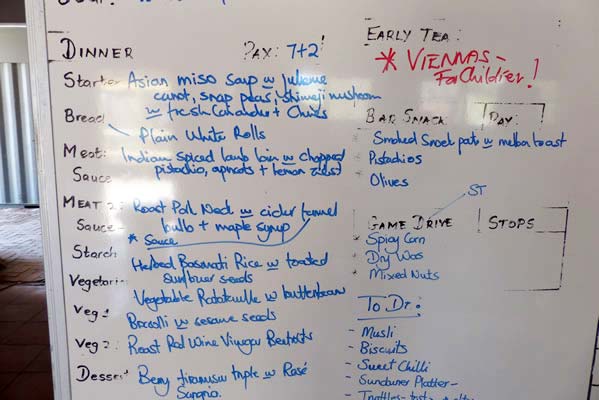 DINNER PAX: 7+2
Starter Asian miso Soup w julienne
carrot, snap peas, shimeji mushroom
w fresh Coriander + Chives
Bread Plain White Rolls
Meat: Indian Spiced lamb loin w chopped
Sauce pistachio, apricots + lemon zest
MEAT 2: Roast Pork Neck w cider fennel
Sauce bulb + maple syrup
* Sauce
Starch Herbed Basmati Rice w toasted
sunflower seeds
Vegetarian Vegetable Ratatouille w butterbean
Veg 1 Broccoli w sesame seeds
Veg 2: Roast Red Wine Vinegar Beetroots
Dessert Berry tiramisu triple w Rosé
Sangria.
EARLY TEA:
* VIENNAS -
For Children!
BAR SNACK DAY:
- Smoked Snoek pate w melba toast
- Pistachios
- Olives
ST
GAME DRIVE STOPS
* Spicy Corn
- Dry Wors
- Mixed Nuts
To Do:
- Musli
- Biscuits
- Sweet Chilli
- Sundowner Platter -
- Truffles -